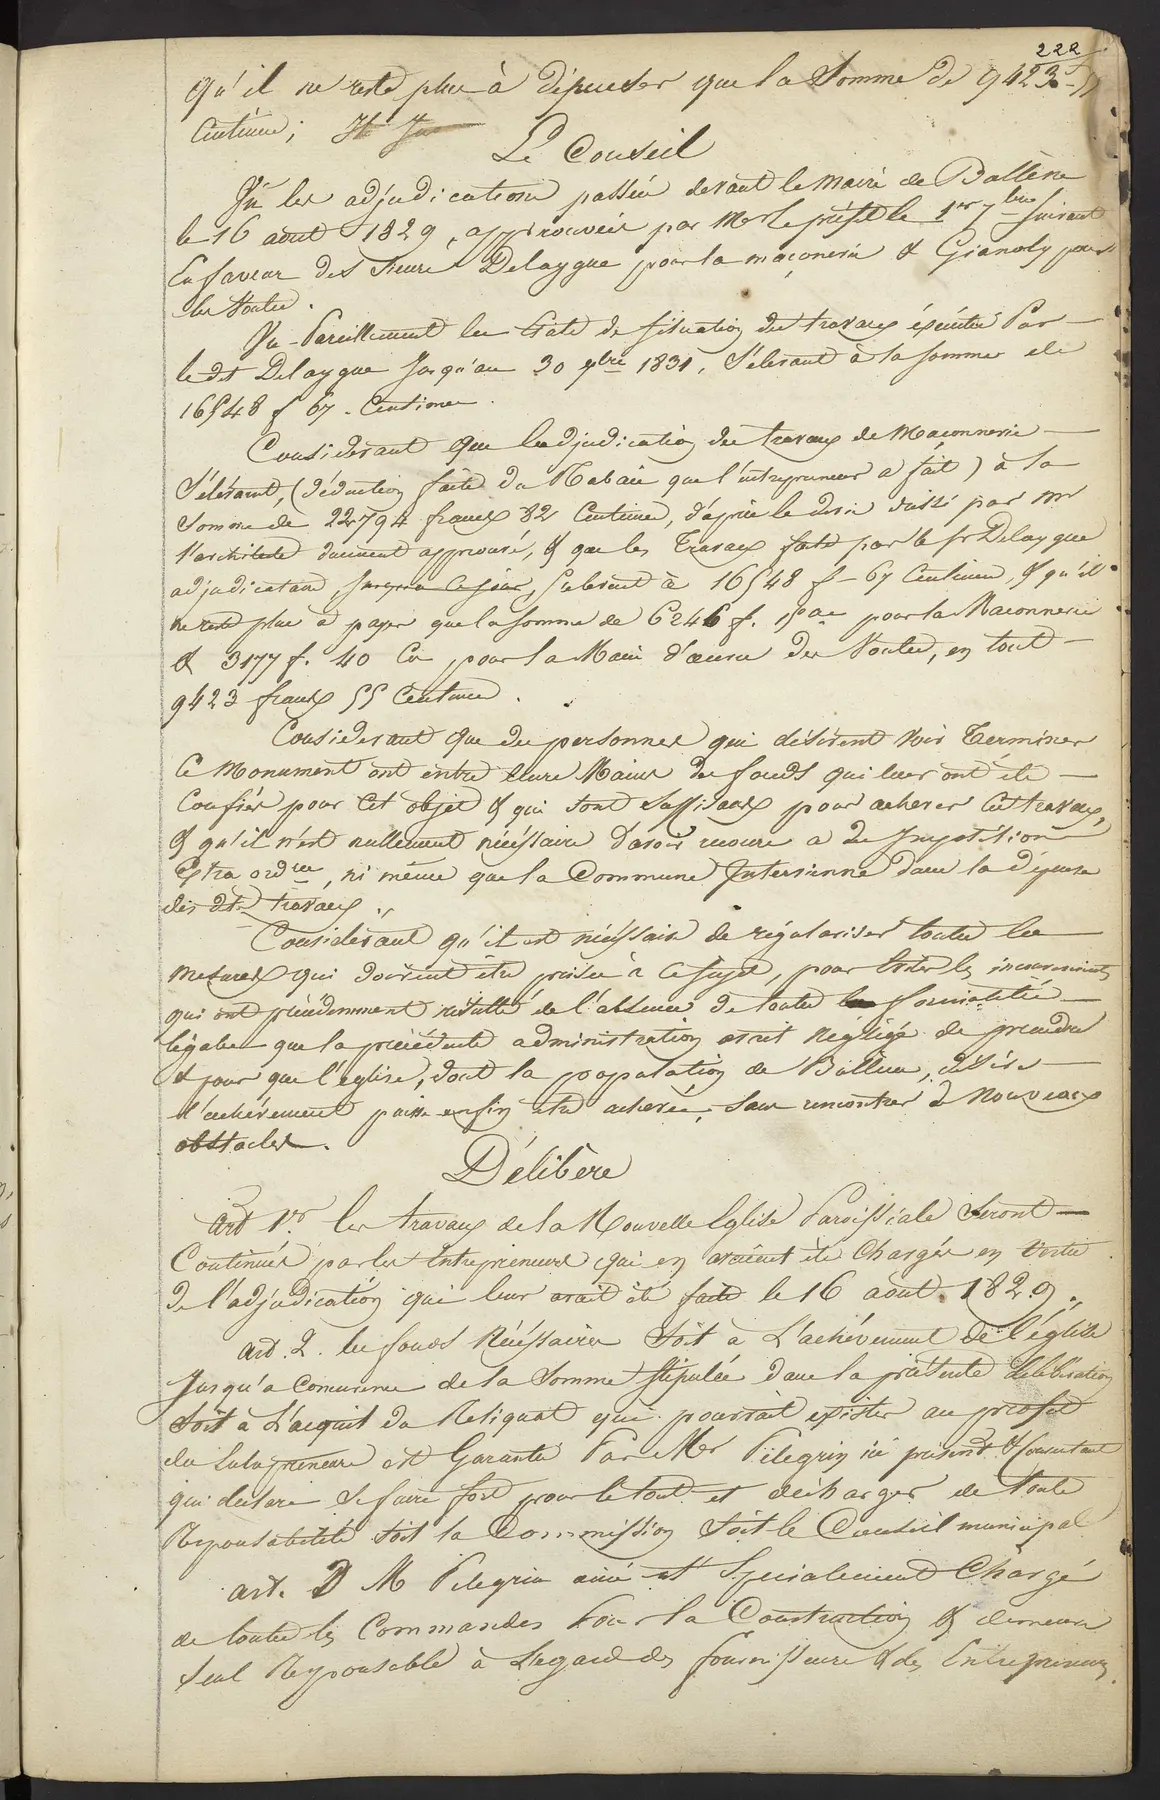 222
qu'il ne reste plus à dépenser que la Somme de 9423 f 55
Centimes;
Le Conseil
Vu les adjudications passées devant le Maire de Ballène
le 16 aout 1829, approuvées par Mr le préfet le 1er 7bre suivant
En faveur des Sieurs Delaygue pour la maçonerie & Gianoly pour
les Voutes.
Vu Pareillement les Etats de situation des travaux éxécutés Par
le dt Delaygue Jusqu'au 30 9bre 1831, S'élevant à la somme de
16548 f 67 Centimes.
Considerant que l'adjudication des travaux de Maçonnerie
S'élévant, (déduction faite du Rabais que l'entrepreneur a fait) à la
Somme de 22794 francs 82 Centimes, d'après le devis dréssé par Mr
l'architecte dument approuvé, & que les Travaux faits par le Sr Delaygue
adjudicataire, Jusqu'a ce jour, s'elevent à 16548 f 67 Centimes, & qu'il
ne reste plus à payer que la somme de 6246 f. 15 ce pour la Maconnerie
& 3177 f. 40 Ce pour la Main d'œuvre des Voutes, en tout
9423 francs 55 Centimes.
Considerant que des personnes qui désirent voir Terminer
Ce Monument ont entre leurs Mains des fonds qui leur ont été
Confiés pour cet objet & qui sont suffisants pour achever ces travaux,
& qu'il n'est nullement nécéssaire d'avoir recours a des Impositions
Extra ordres, ni même que la Commune Intervienne dans la dépense
des dts travaux.
Considérant qu'il est nécéssaire de régulariser toutes les
Mesures qui doivent être prises à ce sujet, pour éviter les inconvenients
qui ont précédemment résulté de l'absence de toutes les formalités
légales que la précédente administration avait négligé de prendre
& pour que l'église, dont la population de Ballène, désire
l'achévement puisse enfin être achevée, sans rencontrer de Nouveaux
obstacles.
Délibère
Art 1er. les travaux de la Nouvelle Eglise Paroissiale Seront
Continués par les Entrepreneurs qui en avaient été Chargés en Vertu
de l'adjudication qui leur avait été faite le 16 aout 1829.
Art. 2. les fonds Nécéssaires Soit à L'achévement de l'église
Jusqu'a concurence de la Somme stipulée dans la présente délibération
Soit à L'acquit du Reliquat qui pourrait exister au profit
des Entrepreneurs est Garantie Par Mr Pélegrin ici présent & Consentant
qui declare se faire fort pour le tout et décharger de toute
Résponsabilité soit la Commission Soit le Conseil municipal
art. 3 M Pelegrin ainé est Spécialement Chargé
de toutes les Commandes Pour la Construction & demeure
Seul Résponsable à L'égard des fournisseurs & des Entrepreneurs.